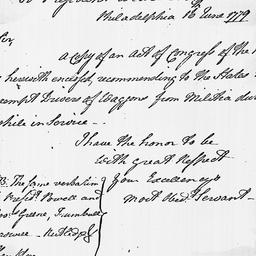 Philadelphia 16 June 1779
Sir,
a Copy of an Act of Congress of the
herewith enclosed, recommending to the States
exempt Drivers of Waggons from Militia du
while in Service -
I have the honor to be
with great Respect
Your Excellency's
most Obedt Servant -
The same verbatim
Presidt Powell and
Greene, Trumbull